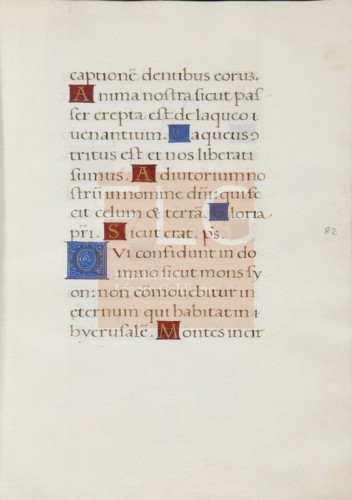 captionē dentibus eorus.
Anima nostra sicut pas
ser erepta est de laqueo i
uenantium. Laqueus 9
tritus est et nos liberati
sumus. Adiutorium no
strū in nomine dn̄i: qui fe
cit celum & terrā. Gloria
pr̄i. Sicut erat. ps.
QVi confidunt in do
mino sicut mons sy
on: non cōmouebitur in
eternum qui habitat in i
hyerusalē. Montes incir
82